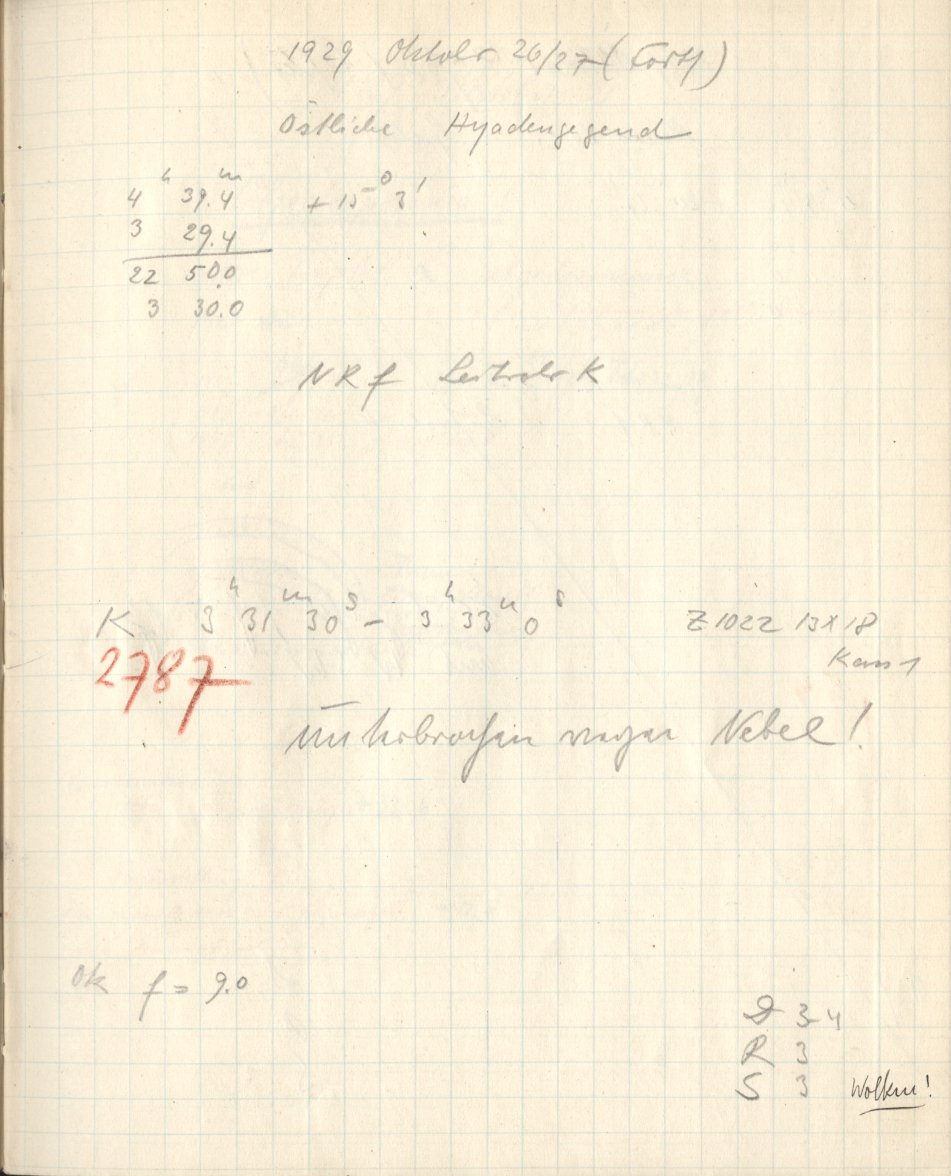 1929 Oktober 26/27 (Forts)
Östliche Hyadengegend
4ʰ 39.4ᵐ + 15° 3'
3 29.4
22 50.0
3 30.0
NRf K
K 3ʰ 31ᵐ 30ˢ – 3ʰ 33ᵐ 0ˢ Z 1022 13 X 18
2787 Kass 1
Unterbrochen wegen Nebel!
Ok f = 9.0
D 3-4
R 3
S 3 Wolken!